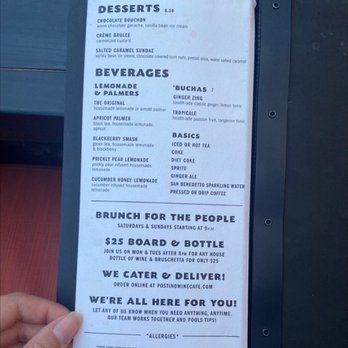 DESSERTS 8.50
CHOCOLATE BOUCHON
warm chocolate ganache, vanilla bean ice cream
CRÈME BRULEE
caramelized custard
SALTED CARAMEL SUNDAE
vanilla bean ice cream, chocolate covered corn nuts, pretzel stick, water salted caramel
BEVERAGES
LEMONADE
& PALMERS
THE ORIGINAL
housemade lemonade or arnold palmer
APRICOT PALMER
black tea, housemade lemonade,
apricot
BLACKBERRY SMASH
green tea, housemade lemonade
& blackberry
PRICKLY PEAR LEMONADE
prickly pear infused housemade
lemonade
CUCUMBER HONEY LEMONADE
cucumber infused housemade
lemonade
'BUCHAS 7
GINGER ZING
health-ade classic ginger, lemon tonic
TROPICALE
health-ade passion fruit, tangerine tonic
BASICS
ICED OR HOT TEA
COKE
DIET COKE
SPRITE
GINGER ALE
SAN BENEDETTO SPARKLING WATER
PRESSED OR DRIP COFFEE
BRUNCH FOR THE PEOPLE
SATURDAYS & SUNDAYS STARTING AT 9AM
$25 BOARD & BOTTLE
JOIN US ON MON & TUES AFTER 8PM FOR ANY HOUSE
BOTTLE OF WINE & BRUSCHETTA FOR ONLY $25
WE CATER & DELIVER!
ORDER ONLINE AT POSTINOWINECAFE.COM
WE'RE ALL HERE FOR YOU!
LET ANY OF US KNOW WHEN YOU NEED ANYTHING, ANYTIME.
OUR TEAM WORKS TOGETHER AND POOLS TIPS!
*ALLERGIES*